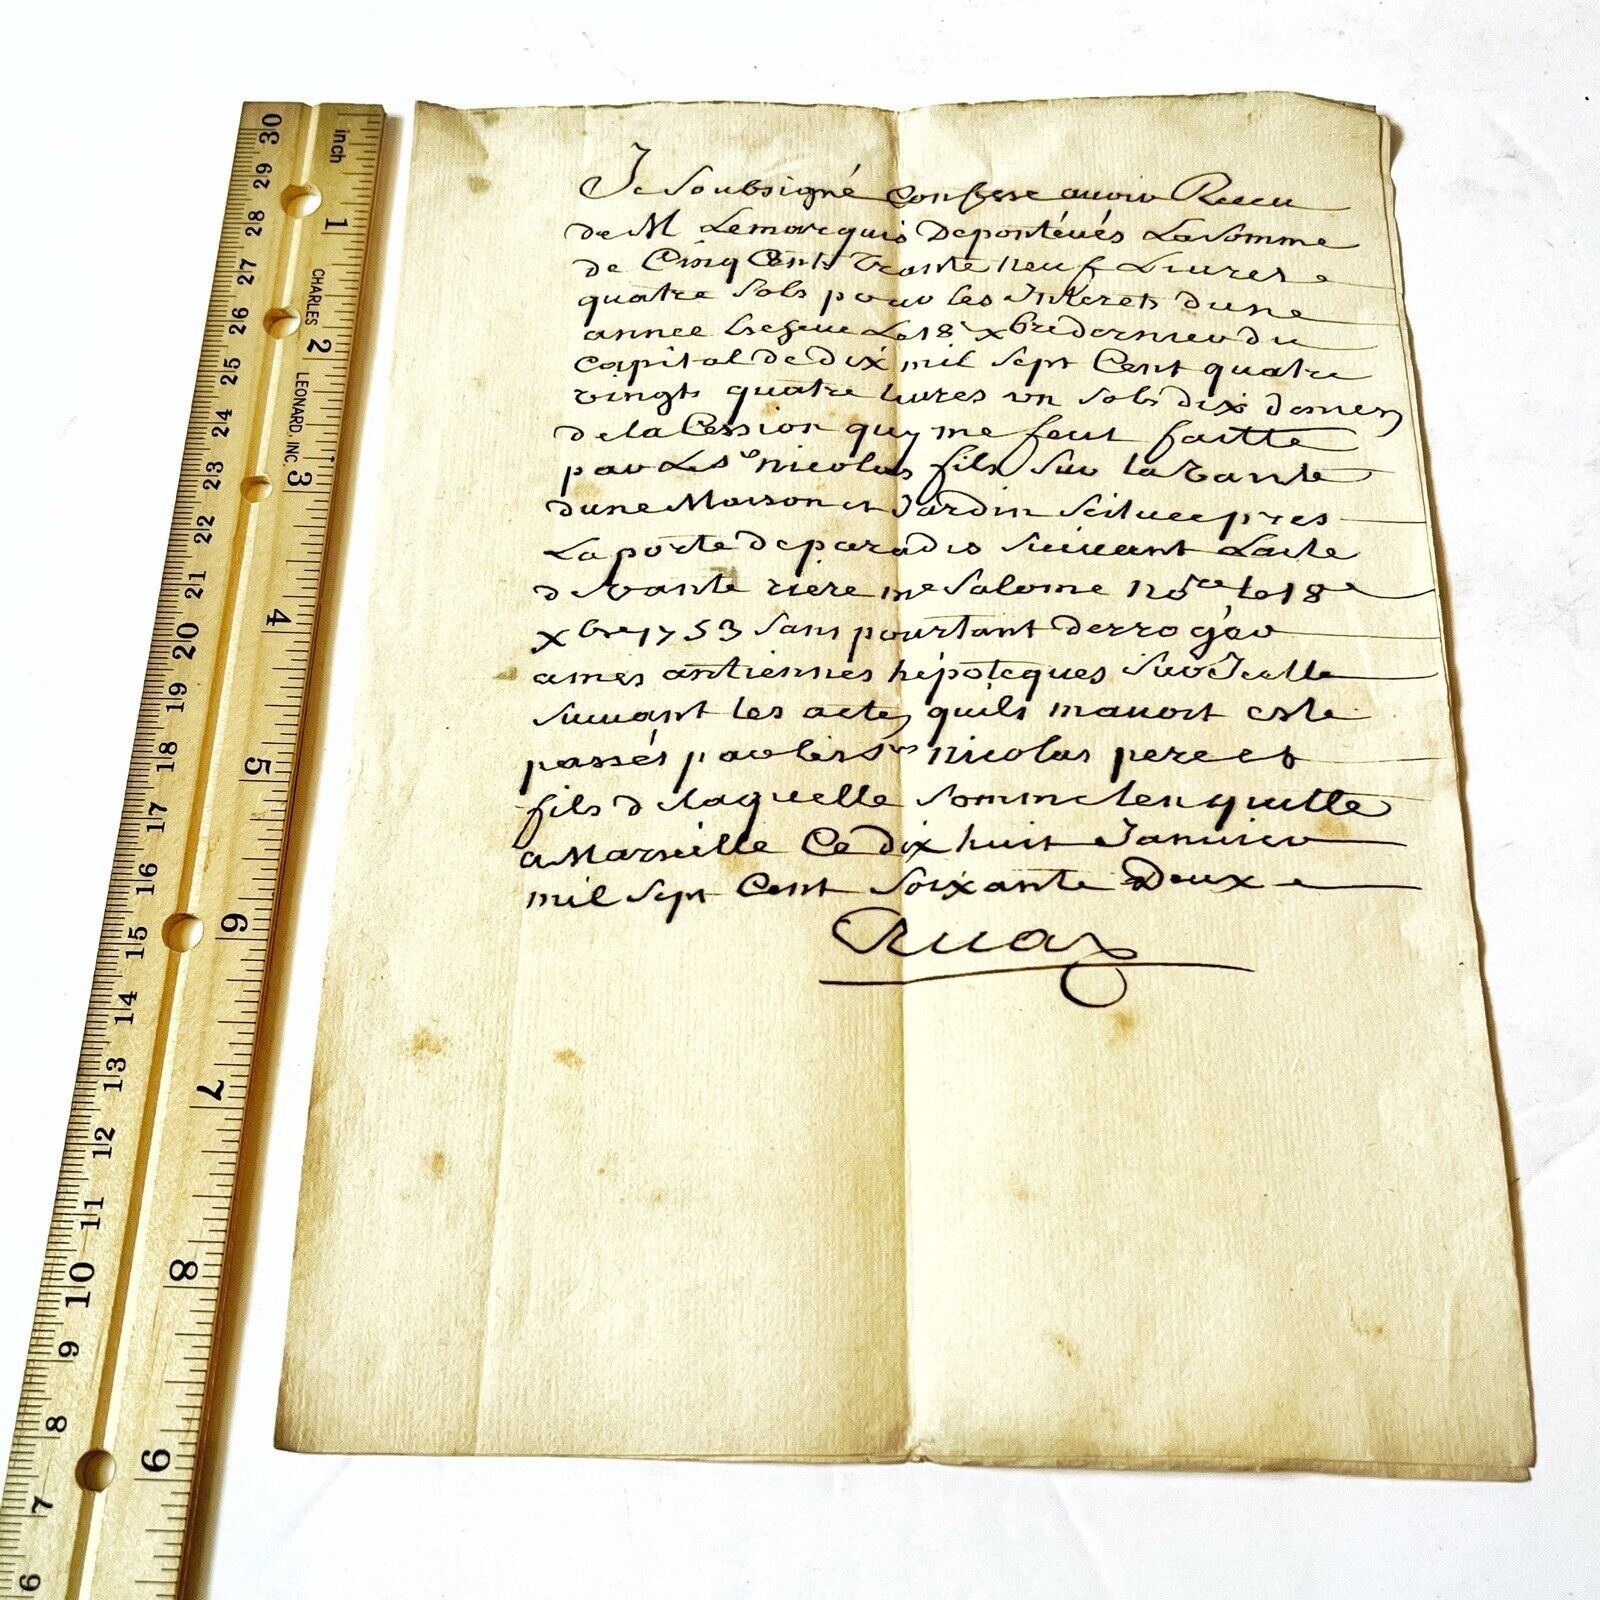 Je Soubsigné Confesse avoir Receu
de M Lemarquis Depontévés La Somme
de Cinq Cents Trante neuf Livres
quatre Sols pour les Interets Dune
année Le 18e xbre dernier du
Capital de dix mil Sept Cent quatre
vingts quatre livres un Sols dix deniers
de la Cession quy me feut faitte
par Le Sr Nicolas fils Sur la vante
dune Maison et Jardin Scituee pres
La porte de paradis Suivant Lacte
de vante riere me Salome nore le 18e
xbre 1753 Sans pourtant derroger
a mes antiennes hépoteques Sur Icelle
Suivant les actes quils mavoit esté
passés par les Srs Nicolas pere et
fils de laquelle Somme len quitte
a Marseille Ce dix huit Janvier
mil Sept Cent Soixante Deux
Ruax
inch
1
2
3
4
5
6
7
8
9
CHARLES LEONARD, INC.
30
29
28
27
26
25
24
23
22
21
20
19
18
17
16
15
14
13
12
11
10
9
8
7
6